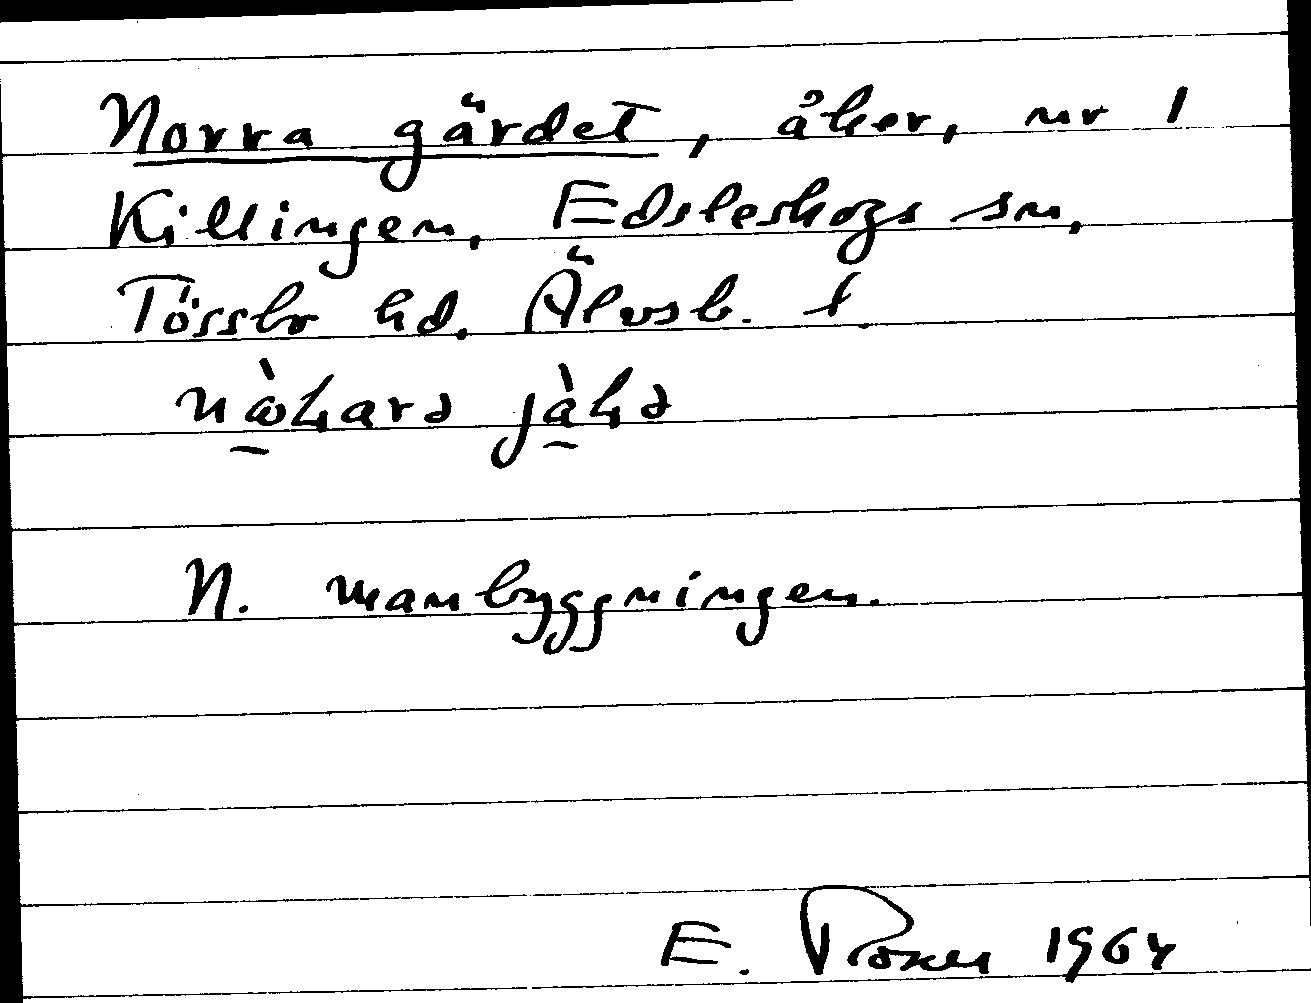 Norra gärdet, åker, nr 1
Killingen, Edsleskogs sn,
Tössbo hd. Älvsb. l
N. manbyggningen.
E. Rosen 1964